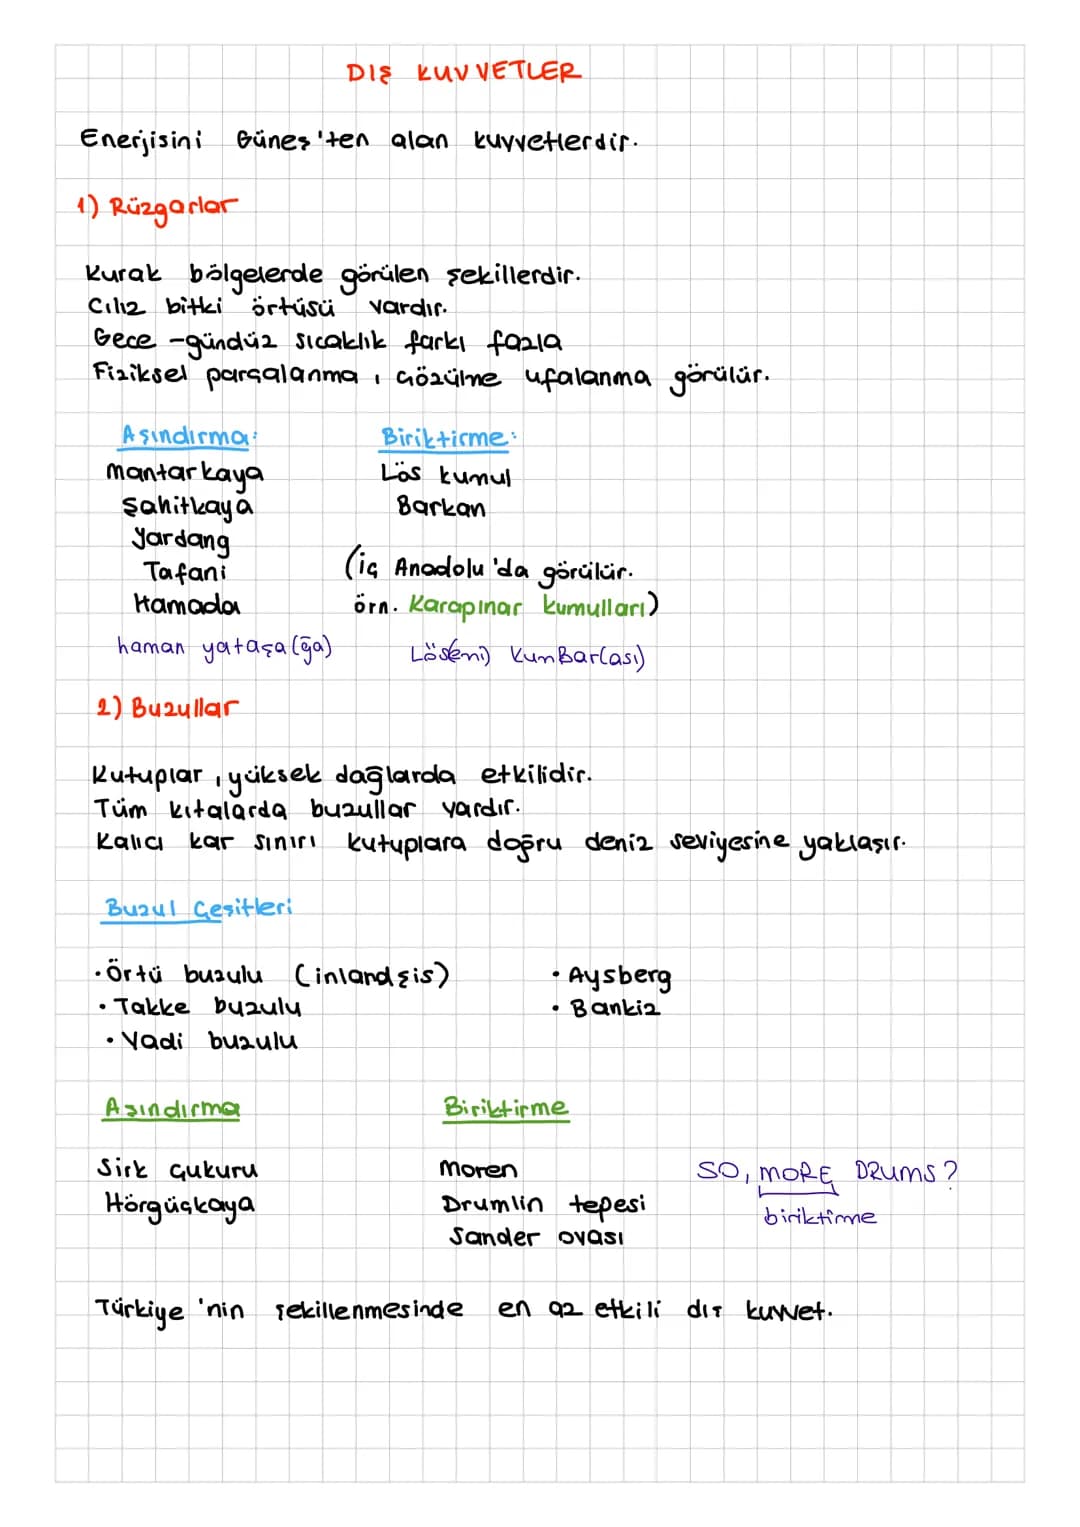 DIŞ KUVVETLER
Enerjisini Güneş'ten alan kuvvetlerdir.
1) Rüzgarlar
Kurak bölgelerde görülen şekillerdir.
Cılız bitki örtüsü vardır.
Gece-gündüz sıcaklık farkı fazla
Fiziksel parçalanma, çözülme ufalanma görülür.
Aşındırma: Biriktirme:
mantarkaya Lös kumul
şahitkaya Barkan
yardang
Tafani (iç Anadolu'da görülür.
Hamada örn. Karapınar kumulları)
haman yataşa(ğa) Lös(emi) KumBar(ası)
2) Buzullar
Kutuplar, yüksek dağlarda etkilidir.
Tüm kıtalarda buzullar vardır.
Kalıcı kar sınırı kutuplara doğru deniz seviyesine yaklaşır.
Buzul Çeşitleri
• Örtü buzulu (inlandşis) • Aysberg
• Takke buzulu • Bankiz
• Vadi buzulu
Aşındırma Biriktirme
Sirk çukuru Moren SO, MORE DRUMS?
Hörgüçkaya Drumlin tepesi biriktirme
Sander ovası
Türkiye'nin şekillenmesinde en az etkili dış kuvvet.